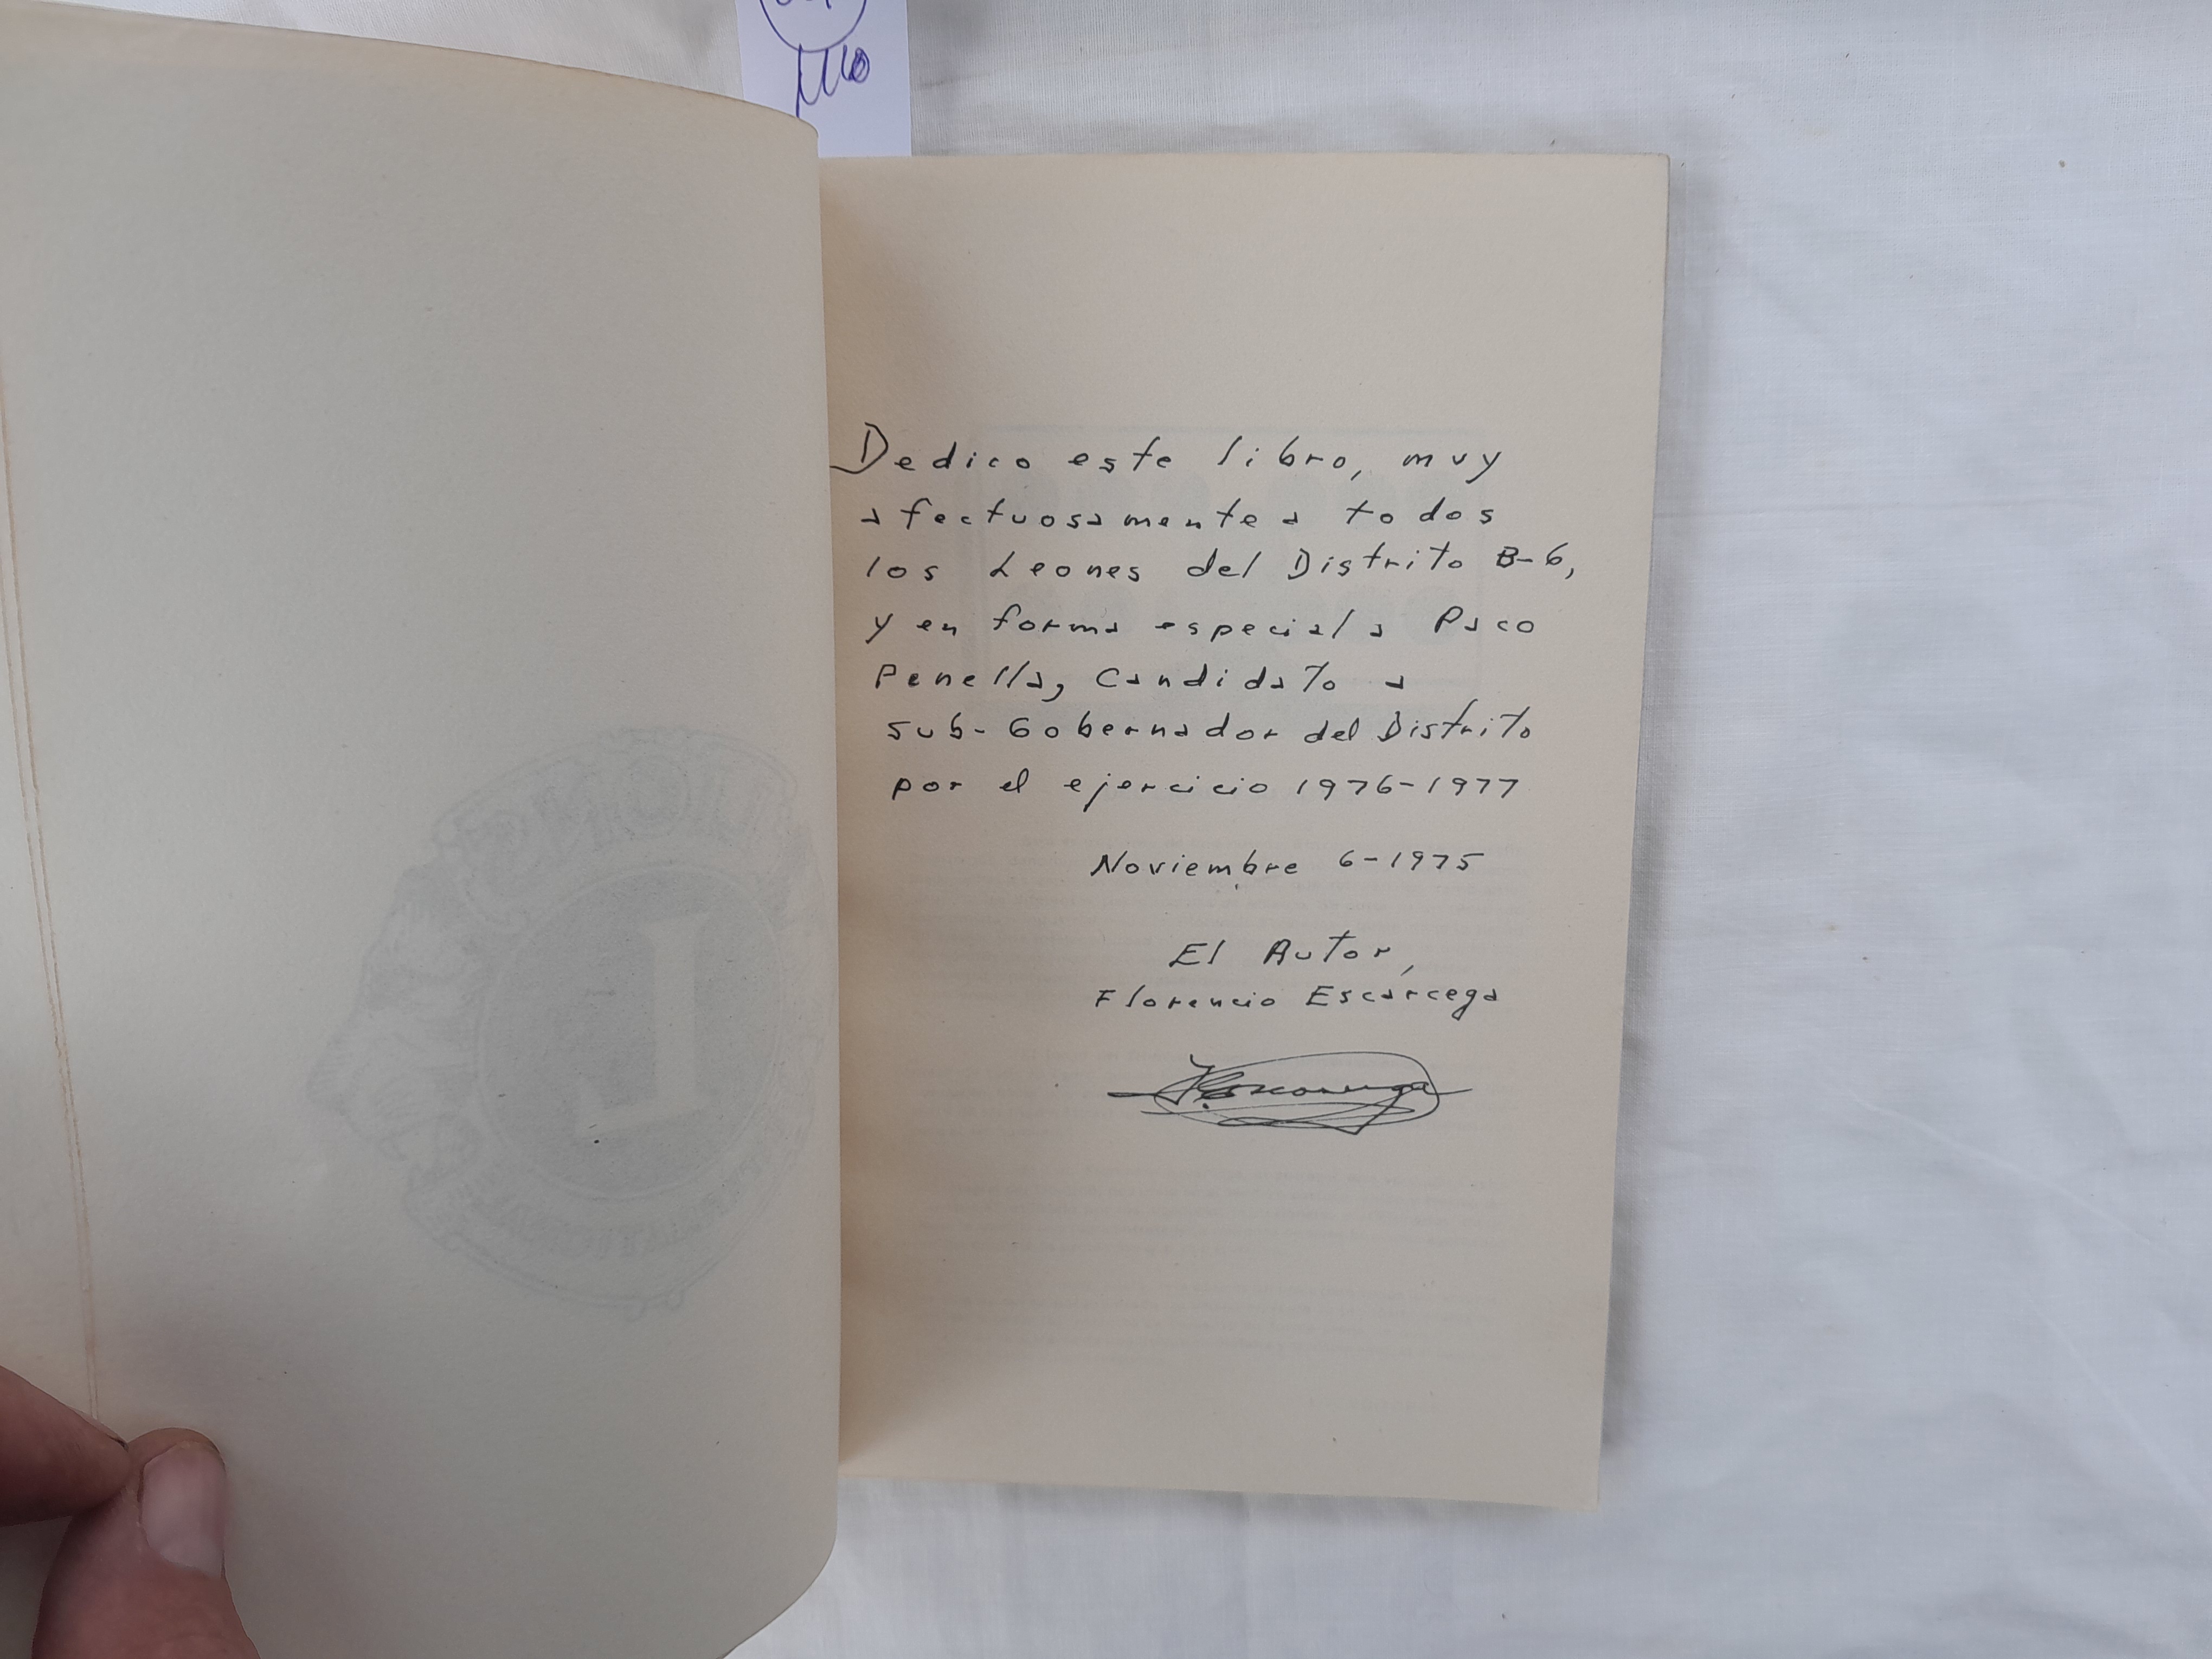 Dedico este libro, muy
afectuosamente a todos
los Leones del Distrito B-6,
y en forma especial a Paco
Penella, Candidato a
Sub-Gobernador del Distrito
por el ejercicio 1976-1977
Noviembre 6-1975
El Autor,
Florencio Escarcega